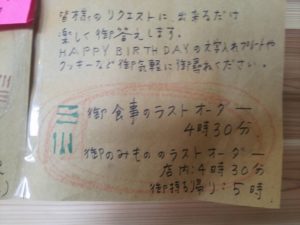 皆様のリクエストに出来るだけ
楽しく御答えします。
HAPPY BIRTHDAYの文字入れプレートや
クッキーなど御気軽に御尋ねください。
御食事のラストオーダー
4時30分
御のみもののラストオーダー
店内:4時30分
御持ち帰り:5時